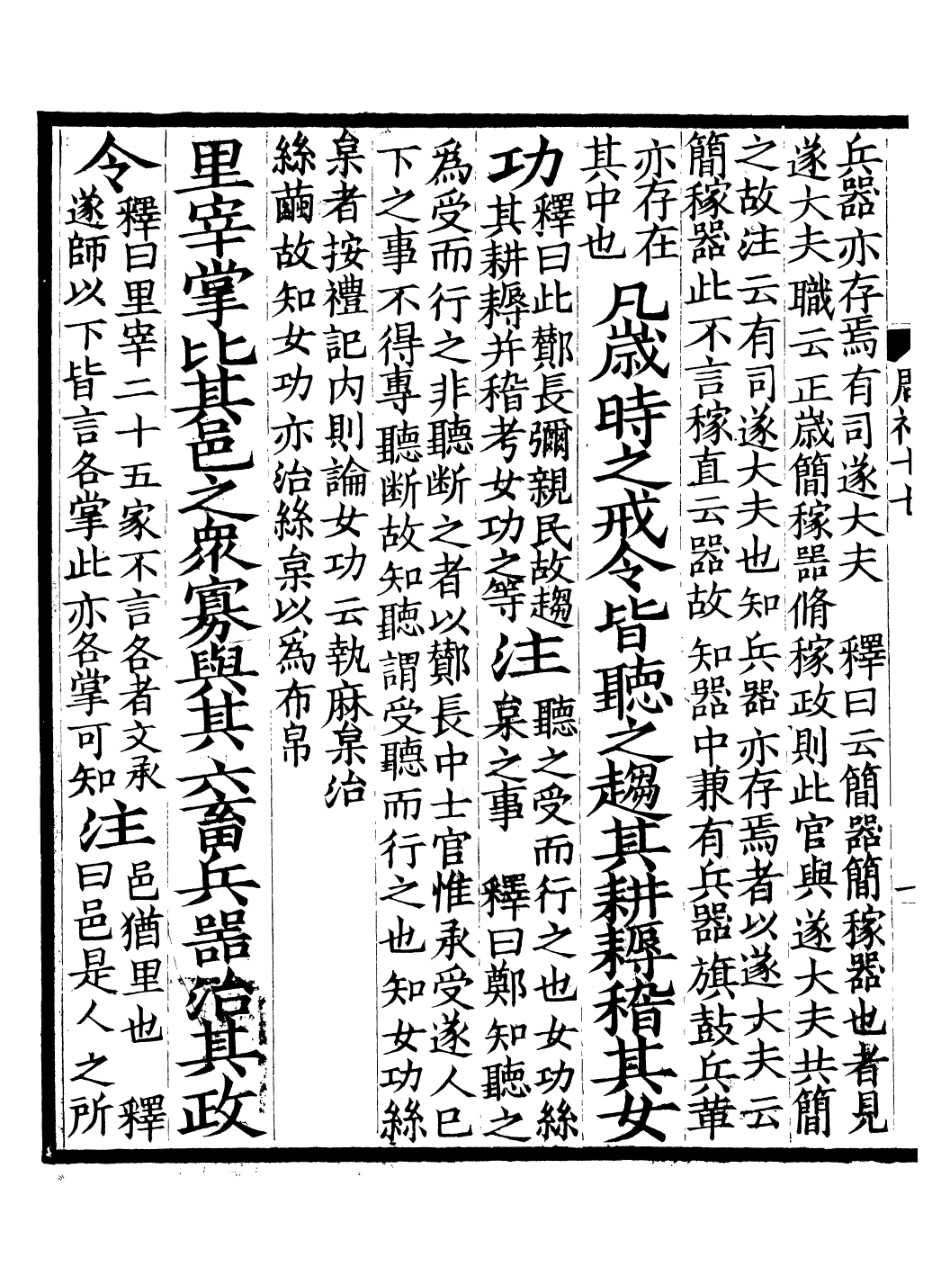 兵器亦存焉有司遂大夫　釋曰云簡器簡稼器也者見
遂大夫職云正歳簡稼噐脩稼政則此官與遂大夫共簡
之故注云有司遂大夫也知兵器亦存焉者以遂大夫云
簡稼器此不言稼直云器故知器中兼有兵器旗鼓兵革
亦存在
其中也
凡歳時之戒令皆聽之趨其耕耨稽其女
功
釋曰此酇長彌親民故趨
其耕耨并稽考女功之等
注
聽之受而行之也女功絲
枲之事　釋曰鄭知聽之
為受而行之非聽断之者以酇長中士官惟承受遂人已
下之事不得專聽断故知聽謂受聽而行之也知女功絲
枲者按禮記内則論女功云執麻枲治
絲繭故知女功亦治絲枲以為布帛
里宰掌比其邑之衆寡與其六畜兵噐治其政
令
釋曰里宰二十五家不言各者文承
遂師以下皆言各掌此亦各掌可知
注
邑猶里也　釋
曰邑是人之所